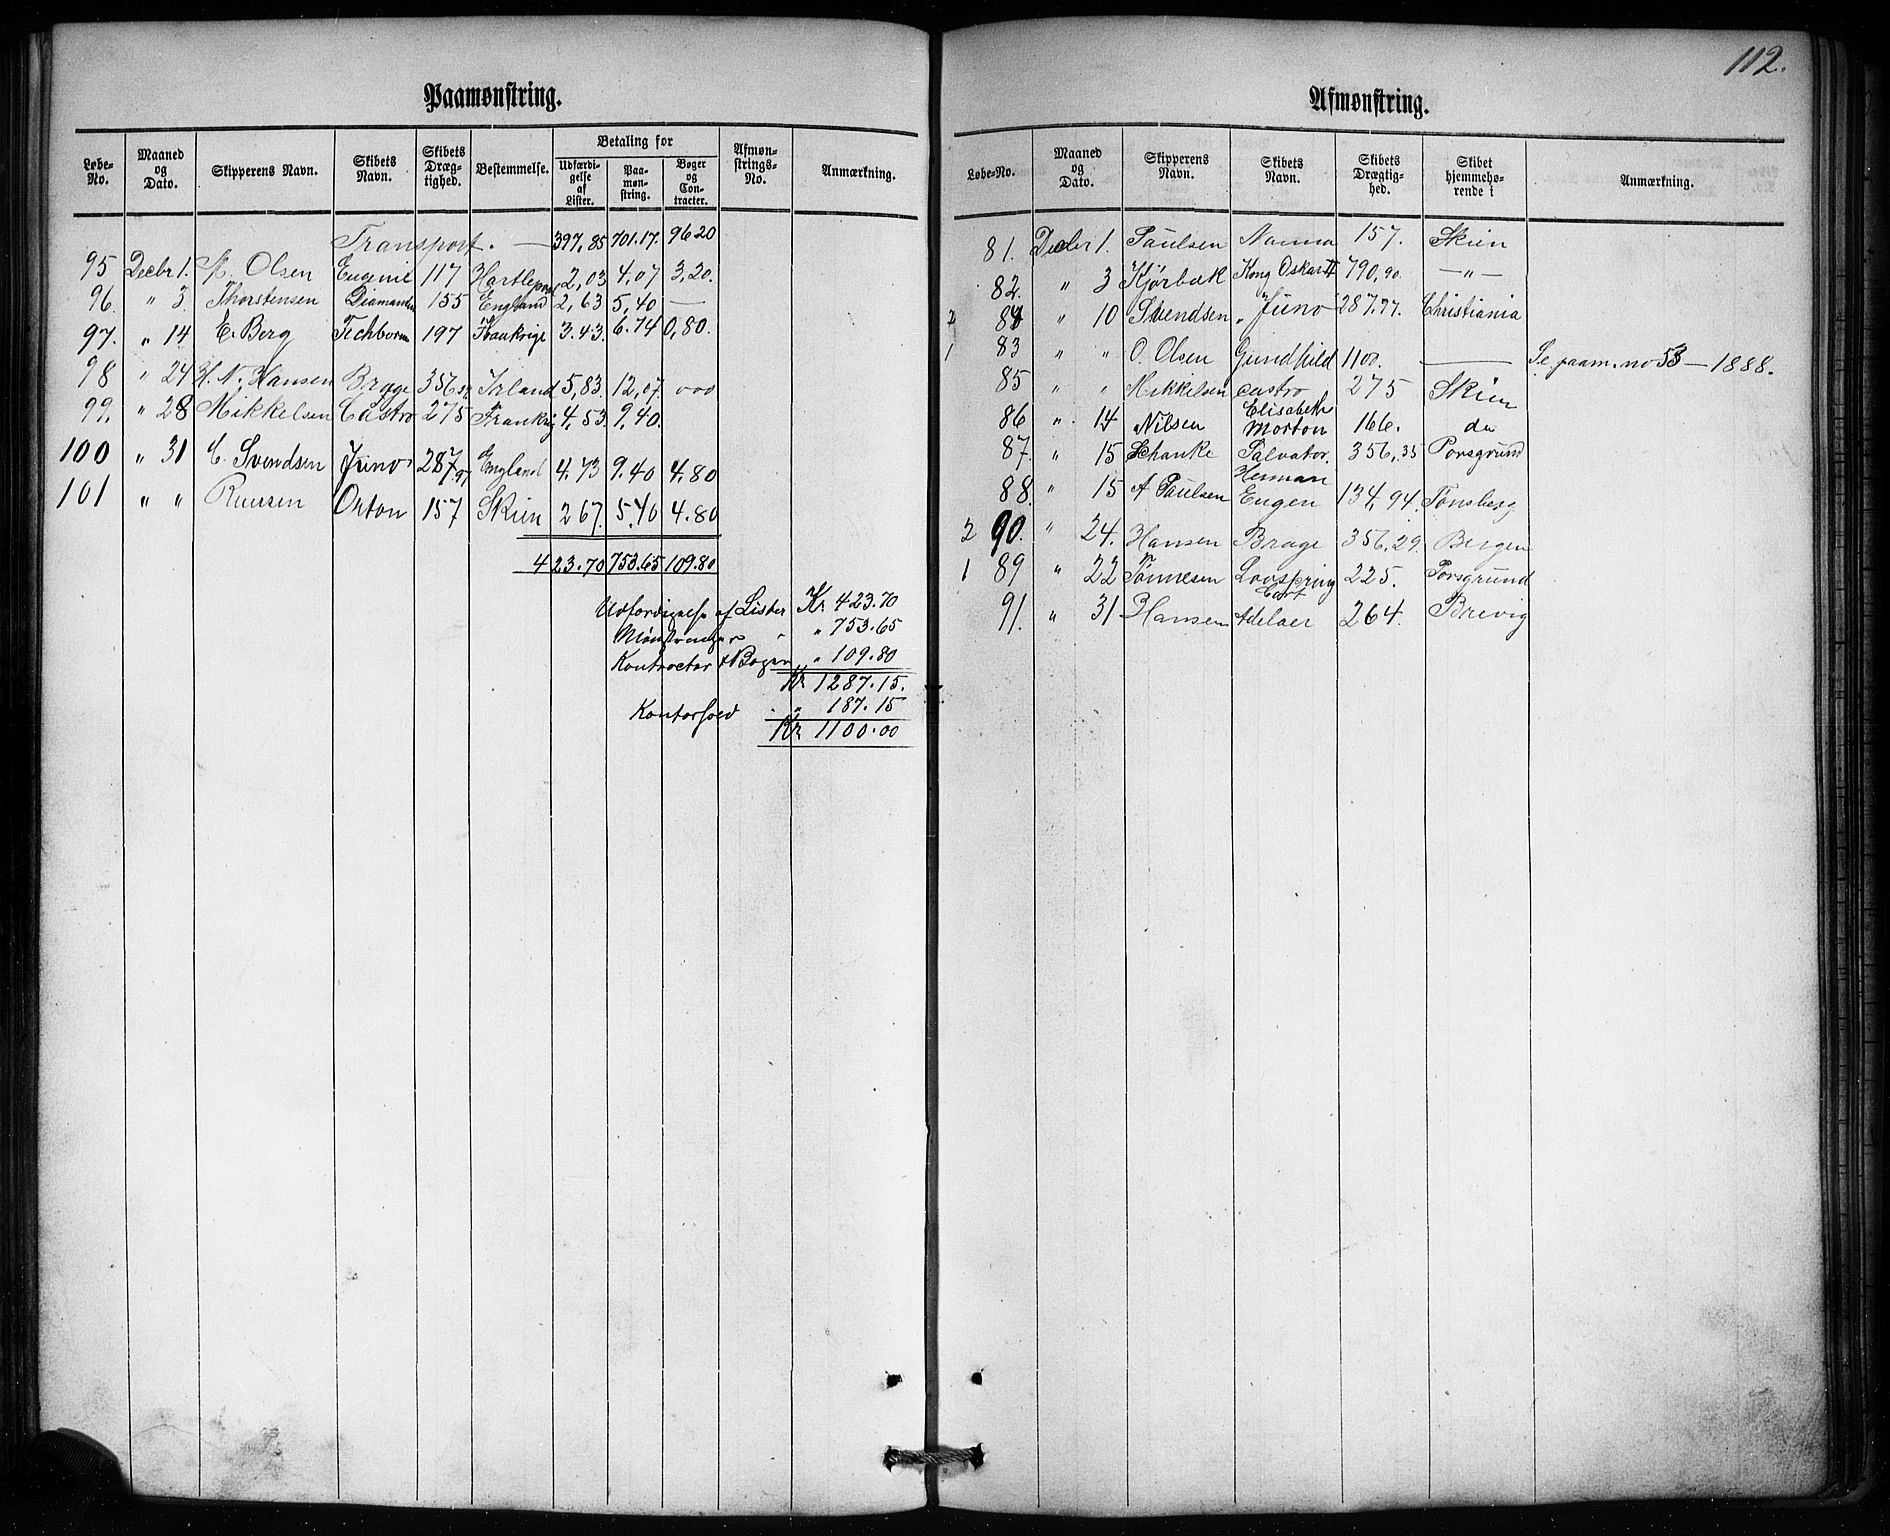 112.
Paamønstring.
Løbe-No. | Maaned og Dato. | Skipperens Navn. | Skibets Navn. | Skibets Dræg-tighed. | Bestemmelse. | Betaling for Udfærdi-gelse af Lister. | Paa-møn-string. | Bøger og Con-tracter. | Afmøn-strings-No. | Anmærkning.
Transport. — 397,85 701.17. 96 20
95 Decbr 1. M. Olsen Eugenie 117 Hartlepool 2,03 4,07 3,20.
96. " 3. Thorstensen Diamanten 155 England 2,63 5,40 —
97. " 14 E. Berg Techborn 197 3.43. 6.74 0,80.
98 " 24 H. N. Hansen Brage 356,29 Irland 5,83. 12,07. 000
99. " 28 Mikkelsen Castro 275 Frankrig 4,53. 9,40.
100 " 31 C. Svendsen Juno 287,97 England 4.73 9.40 4,80
101 " " Orton 157 Skien 2 67. 5.40 4.80
423.70 753.65 109.80
Udfærdigelse af Lister Kr 423.70
Mønstringer " " 753.65
Kontracter & Bøger " 109.80
Kr 1287.15.
Kontorhold " 187.15
Kr 1100.00
Afmønstring.
Løbe-No. | Maaned og Dato. | Skipperens Navn. | Skibets Navn. | Skibets Drægtig-hed. | Skibet hjemmehø-rende i | Anmærkning.
81. Decbr 1. Paulsen Nanna 157. Skien
82. " 3 Kjørbæk Kong Oskar II 790,90. — " —
2 84 " 10 Svendsen Juno 287,97. Christiania
1 83 " " O. Olsen Gundhild 1100. — Se paam. no 53 — 1888.
85 " " Mikkelsen Castro 275 Skien
86 " 14 Nilsen Elisabeth Morton 166. do
87. " 15 Schanke Salvator. 356,35 Porsgrund
88. " 15 A Paulsen Herman Eugen 134,94. Tønsberg
2 90. " 24. Hansen Brage 356,29. Bergen
1 89 " 22 Tønnesen Lovspring 225. Porsgrund
91. " 31 Hansen Curt Adelaer 264. Brevig